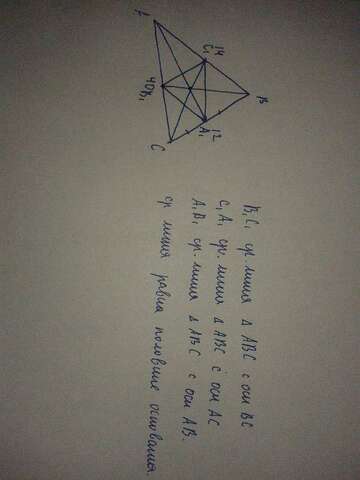 A
14
C₁
B
40 B₁
A₁
12
C
B₁C₁ ср. линия Δ ABC с осн BC
C₁A₁ ср. линия Δ ABC с осн AC
A₁B₁ ср. линия Δ ABC с осн AB.
ср линия равна половине основания.